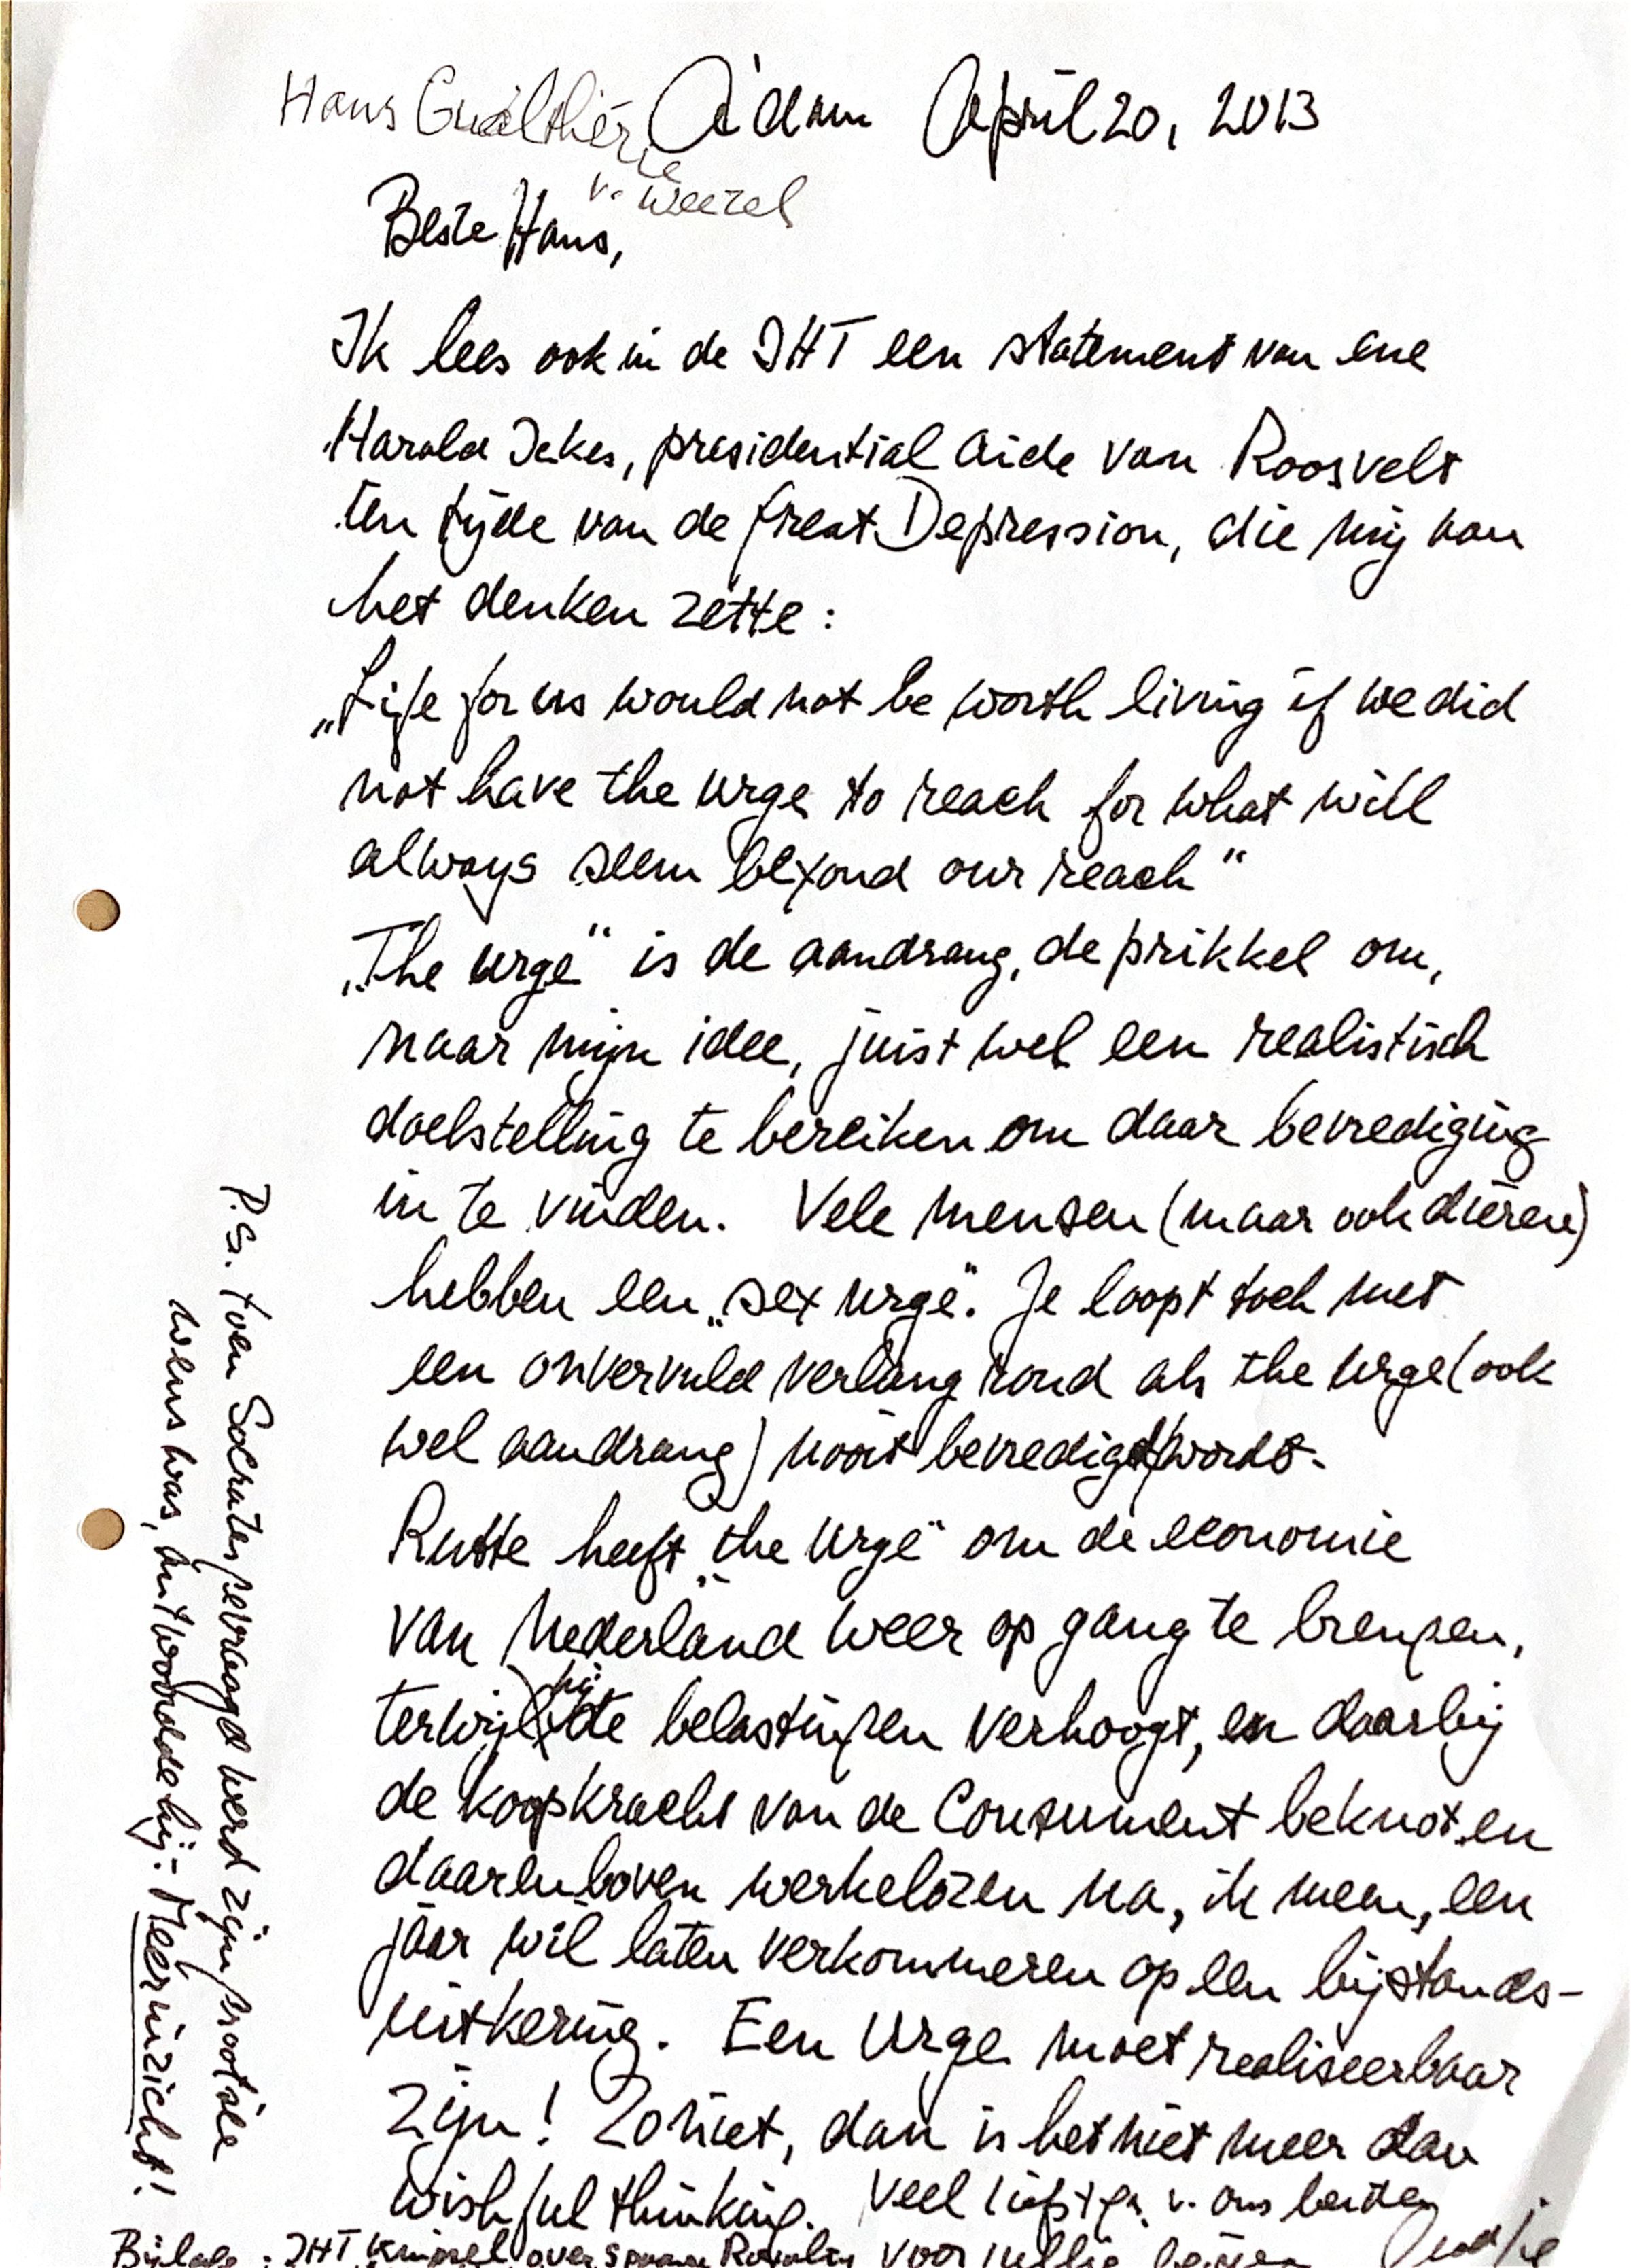 Hans Gualthérie A'dam April 20, 2013
v. Weezel
Beste Hans,
Ik lees ook in de IHT een statement van ene
Harold Ickes, presidential aide van Roosvelt
ten tijde van de Great Depression, die mij aan
het denken zette:
„Life for us would not be worth living if we did
not have the urge to reach for what will
always seem beyond our reach"
„The urge" is de aandrang, de prikkel om,
naar mijn idee, juist wel een realistisch
doelstelling te bereiken om daar bevrediging
in te vinden. Vele mensen (maar ook dieren)
hebben een „sex urge". Je loopt toch met
een onvervuld verlang rond als the urge (ook
wel aandrang) nooit bevredigd wordt.
Rutte heeft „the urge" om de economie
van Nederland weer op gang te brengen,
terwijl hij de belastingen verhoogt, en daarbij
de koopkracht van de Consument beknot en
daarenboven werkelozen na, ik meen, een
jaar wil laten verkommeren op een bijstands-
uitkering. Een Urge moet realiseerbaar
zijn! Zo niet, dan is het niet meer dan
wishful thinking. Veel liefs v. ons beiden
Bijlage: IHT knipsel over Spaanse Royalty voor jullie
P.S. toen Socrates gevraagd werd zijn grootste
wens was, antwoordde hij: - Meer inzicht!